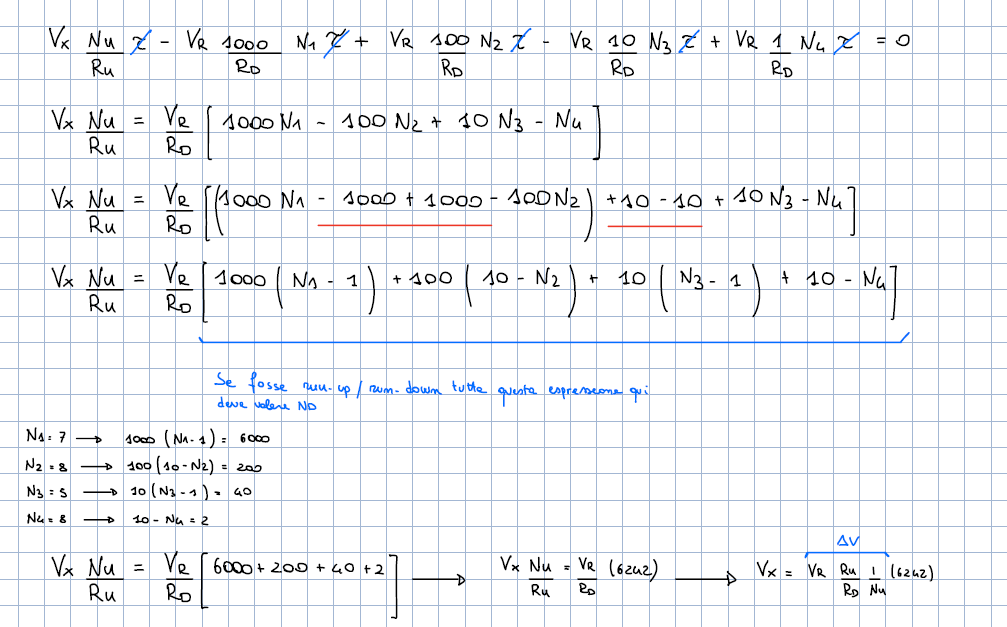 Vx Nu/Ru τ - VR 1000/RD N1 τ + VR 100/RD N2 τ - VR 10/RD N3 τ + VR 1/RD N4 τ = 0
Vx Nu/Ru = VR/RD [ 1000 N1 - 100 N2 + 10 N3 - N4 ]
Vx Nu/Ru = VR/RD [(1000 N1 - 1000 + 1000 - 100 N2) + 10 - 10 + 10 N3 - N4]
Vx Nu/Ru = VR/RD [ 1000 ( N1 - 1 ) + 100 ( 10 - N2 ) + 10 ( N3 - 1 ) + 10 - N4 ]
Se fosse run-up / run-down tutta questa espressione qui
deve valere ND
N1 = 7 → 1000 (N1 - 1) = 6000
N2 = 8 → 100 (10 - N2) = 200
N3 = 5 → 10 (N3 - 1) = 40
N4 = 8 → 10 - N4 = 2
ΔV
Vx Nu/Ru = VR/RD [ 6000 + 200 + 40 + 2 ] → Vx Nu/Ru = VR/RD (6242) → Vx = VR Ru/RD 1/Nu (6242)